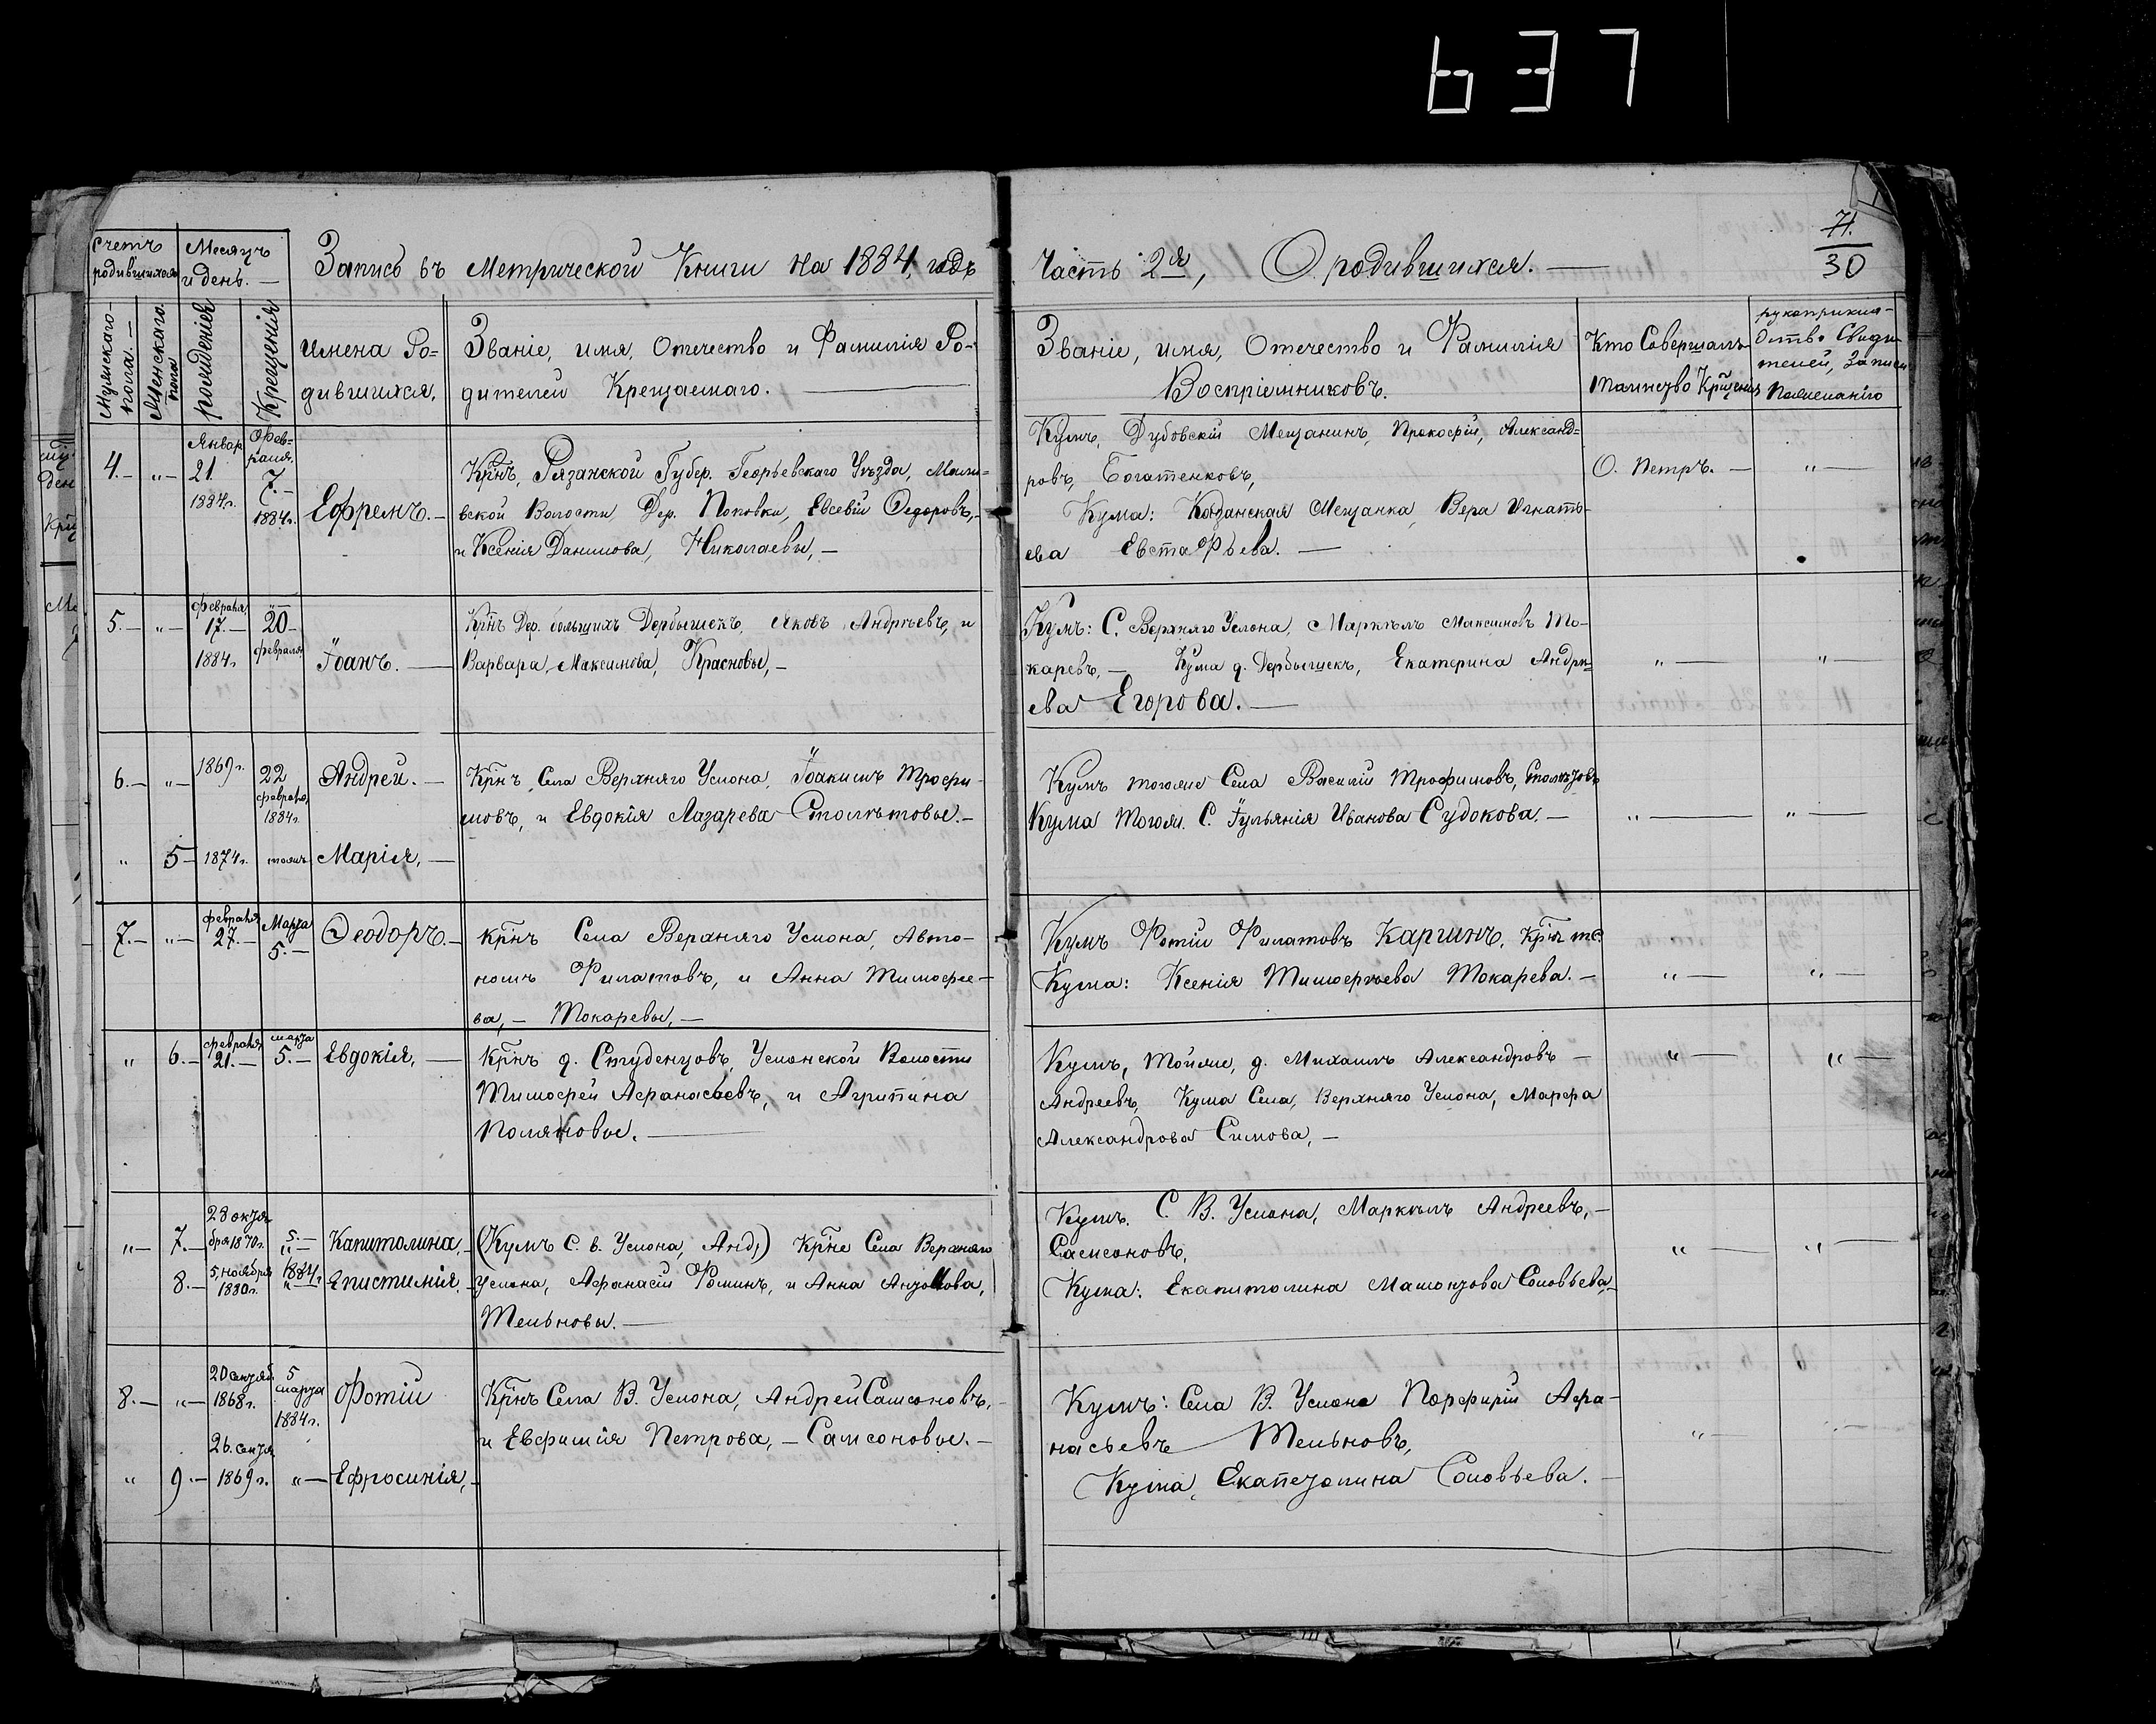 637
71.
30
Счетъ родившихся
Месяцъ и день.
Запись въ Метрической Книги на 1884, годъ
Часть 2я, О родившихся.
Мужскаго пола.
Женскаго пола
рожденія
Крещенія
Имена Ро-
дившихся,
Званіе, имя, Отечество и Фамилія Ро-
дителей Крещаемаго.
Званіе, имя, Отечество и Фамилія
Воспріемниковъ.
Кто Совершалъ
таинство Крщенія
рукоприкла-
дство Свиде
телей, Записи
4.- „- Январ 21. 1884г. Фев-
раля, 7.- 1884г. Ефремъ.-
Крнъ, Рязанской Губер. Георьевскаго Уѣзда,
вской Волости, Дер. Поповки, Евсевій Ѳедоровъ,-
и Ксенія Данилова, Николаевы,-
Кумъ, Дубовскій Мещанинъ, Прокофій, Александ-
ровъ, Богатенковъ,
Кума: Казанская Мещанка, Вера Игнать-
ева Евстафьева.
О. Петръ.- „-
5.- „- февраля 17.- 1884г. 20- февраля, Іоанъ.
Крнъ Дер. большихъ Дербышекъ, Яковъ Андрѣевъ, и
Варвара, Максимова, Красновы,-
Кумъ: С. Верхняго Услона, Маркѣлъ Максимовъ То-
каревъ,- Кума д. Дербышекъ, Екатерина Андрѣ-
ева Егорова.
„- „-
6.- „- 1869г. 22 февраля, 1884г. Андрей.-
Крнъ, Села Верхняго Услона, Іоакимъ Трофи-
мовъ, и Евдокія Лазарева Столѣтовы.-
Кумъ тогоже Села Василій Трофимовъ,
Кума Тогож. С. Іульянія Иванова Судокова.-
„- „-
„ 5- 1874г. тожъ Марія,-
7.- „- февраля 27.- Марта 5.- Ѳеодоръ.-
крнъ Села Верхняго Услона, Авто-
номъ Филатовъ, и Анна Тимофее-
ва,- Токаревы,-
Кумъ Фотій Филатовъ Каргинъ, Крн тс.
Кума: Ксенія Тимофѣева Токарева.-
„- „-
„ 6.- февраля 21.- марта 5.- Евдокія,
Крнъ д. Студенцовъ, Услонской Волости
Тимофей Афанасьевъ, и Агрипина
Поляковы.
Кумъ, Тойже, д. Михаилъ Александровъ -
Андреевъ, Кума Села, Верхняго Услона, Марфа
Александрова Симова,-
„- „-
„- 7.- 28 октя
бря 1870г. 5.- „- Капитолина,-
8.- 5, ноября 1880г. 1884г. „- Епистимія.-
(Кумъ С. в. Услона, Анд,) Крне Села Верхняго
Услона, Афанасій Фоминъ, и Анна
Тельновы.
Кумъ. С. В. Услона, Маркѣлъ Андреевъ,-
Самсоновъ,
Кума: Екапитолина Соловьева,-
„- „-
8.- „- 1868г. 5 марта 1884г. Фотій
Крнъ Села В. Услона, Андрей Самсоновъ,
и Евфимія Петрова,- Самсоновы.-
Кумъ: Села В. Услона Порфирій Афа-
насьевъ Тельновъ,
Кума, Соловьева.
„-
„ 9.- 1869г. „- Ефросинія,-